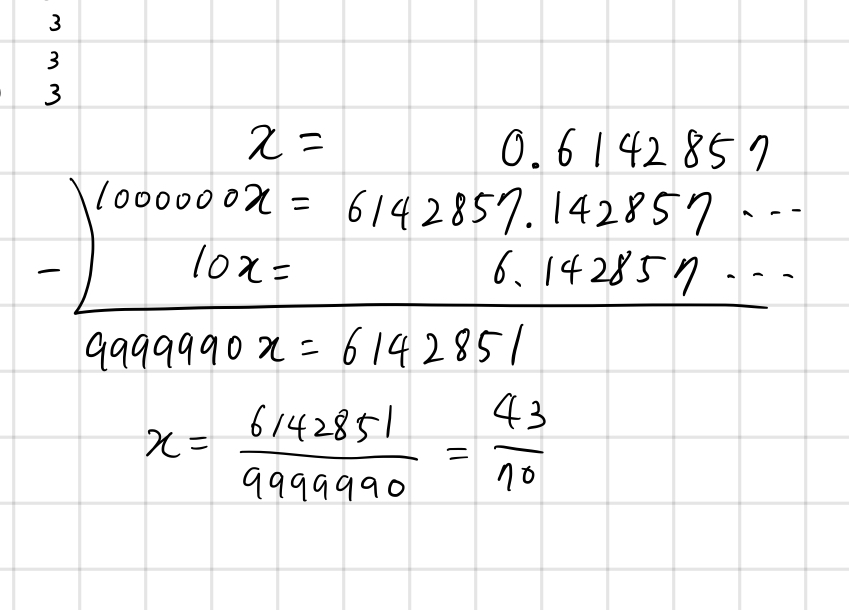 3
3
3
x = 0.6142857
1000000x = 6142857.142857 ...
− 10x = 6.142857 ...
9999990x = 6142851
x = 6142851/9999990 = 43/70